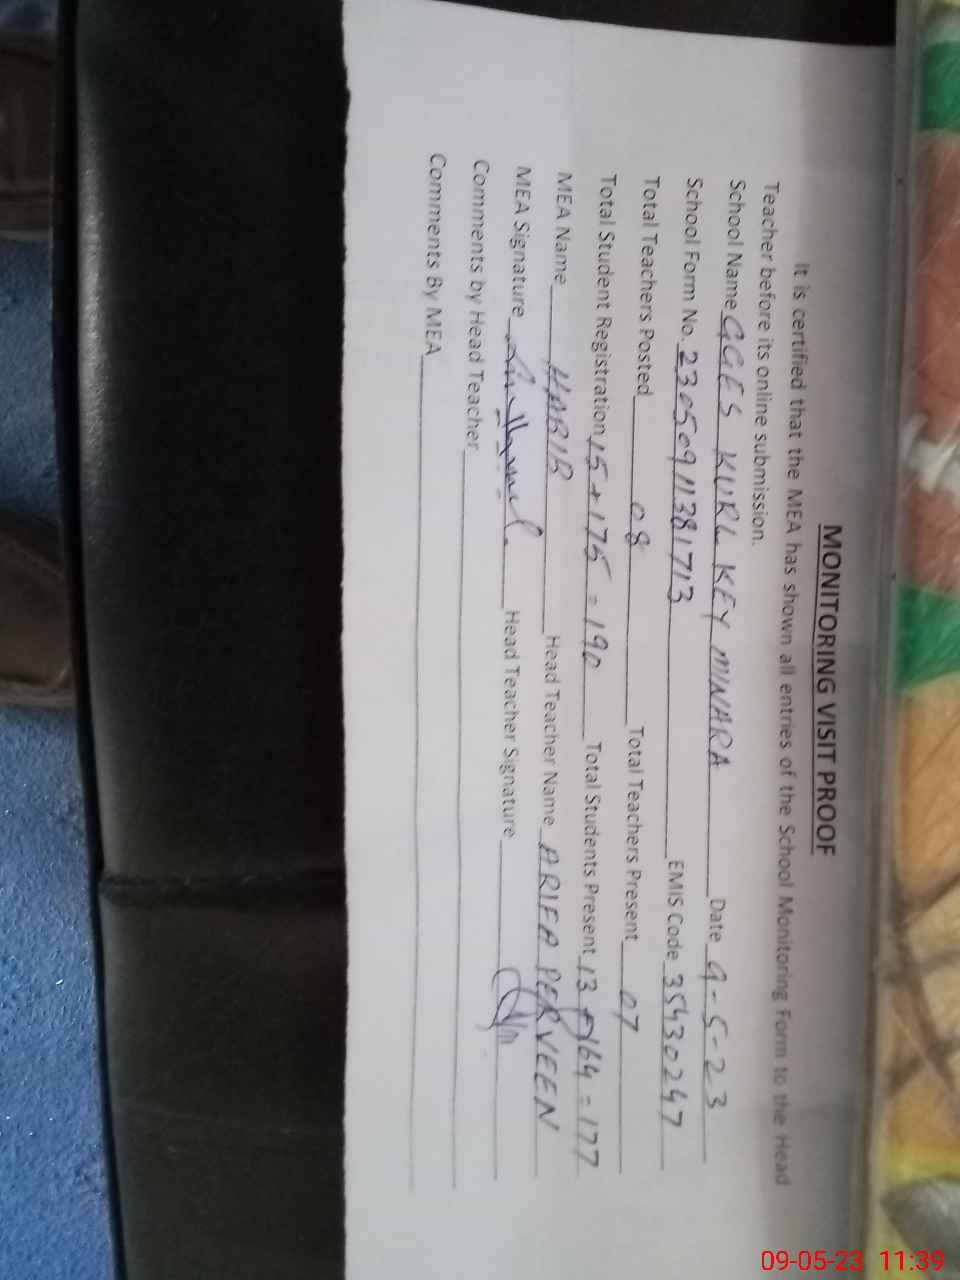 MONITORING VISIT PROOF
It is certified that the MEA has shown all entries of the School Monitoring Form to the Head
Teacher before its online submission.
School Name GGES KURL KEY MNARA Date 9-5-23
School Form No. 23050911381713 EMIS Code 35430247
Total Teachers Posted 08 Total Teachers Present 07
Total Student Registration 15+175=190 Total Students Present 13+164=177
MEA Name HABIB Head Teacher Name ARIFA PERVEEN
MEA Signature Head Teacher Signature
Comments by Head Teacher
Comments By MEA
09-05-23 11:39